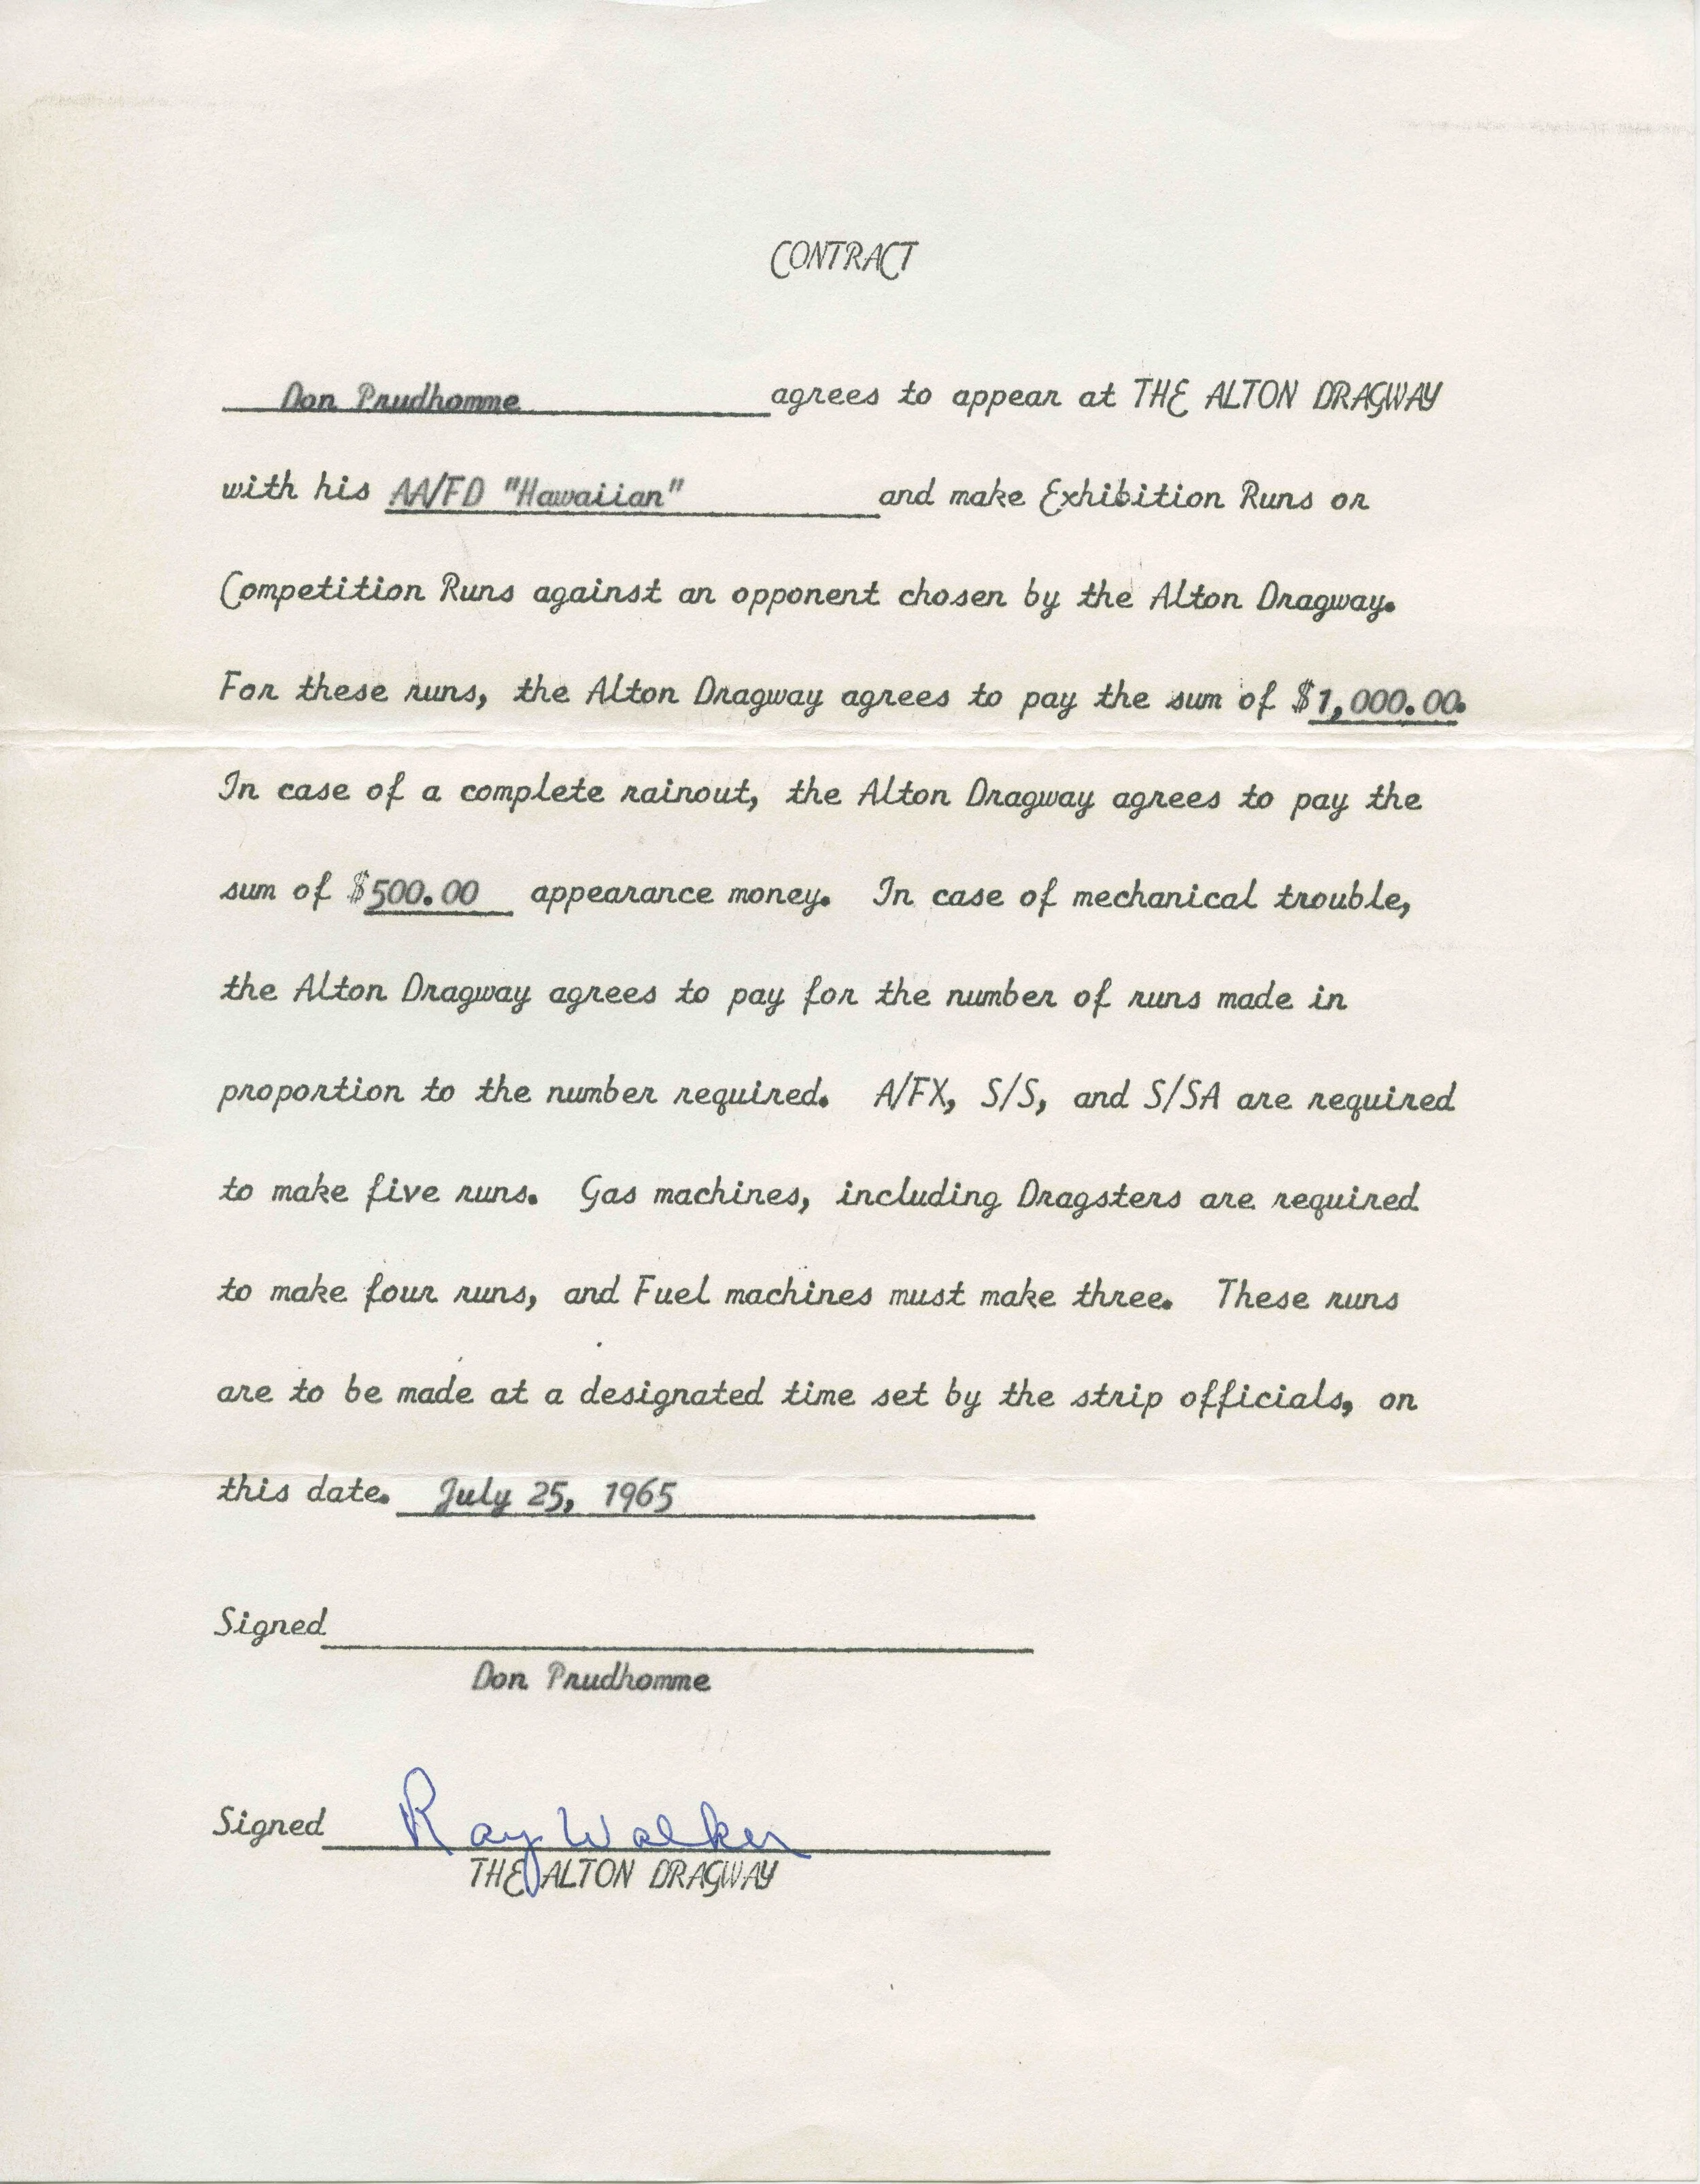 CONTRACT
Don Prudhomme agrees to appear at THE ALTON DRAGWAY
with his AA/FD "Hawaiian" and make Exhibition Runs or
Competition Runs against an opponent chosen by the Alton Dragway.
For these runs, the Alton Dragway agrees to pay the sum of $1,000.00.
In case of a complete rainout, the Alton Dragway agrees to pay the
sum of $500.00 appearance money. In case of mechanical trouble,
the Alton Dragway agrees to pay for the number of runs made in
proportion to the number required. A/FX, S/S, and S/SA are required
to make five runs. Gas machines, including Dragsters are required
to make four runs, and Fuel machines must make three. These runs
are to be made at a designated time set by the strip officials, on
this date. July 25, 1965
Signed
Don Prudhomme
Signed Ray Walker
THE ALTON DRAGWAY